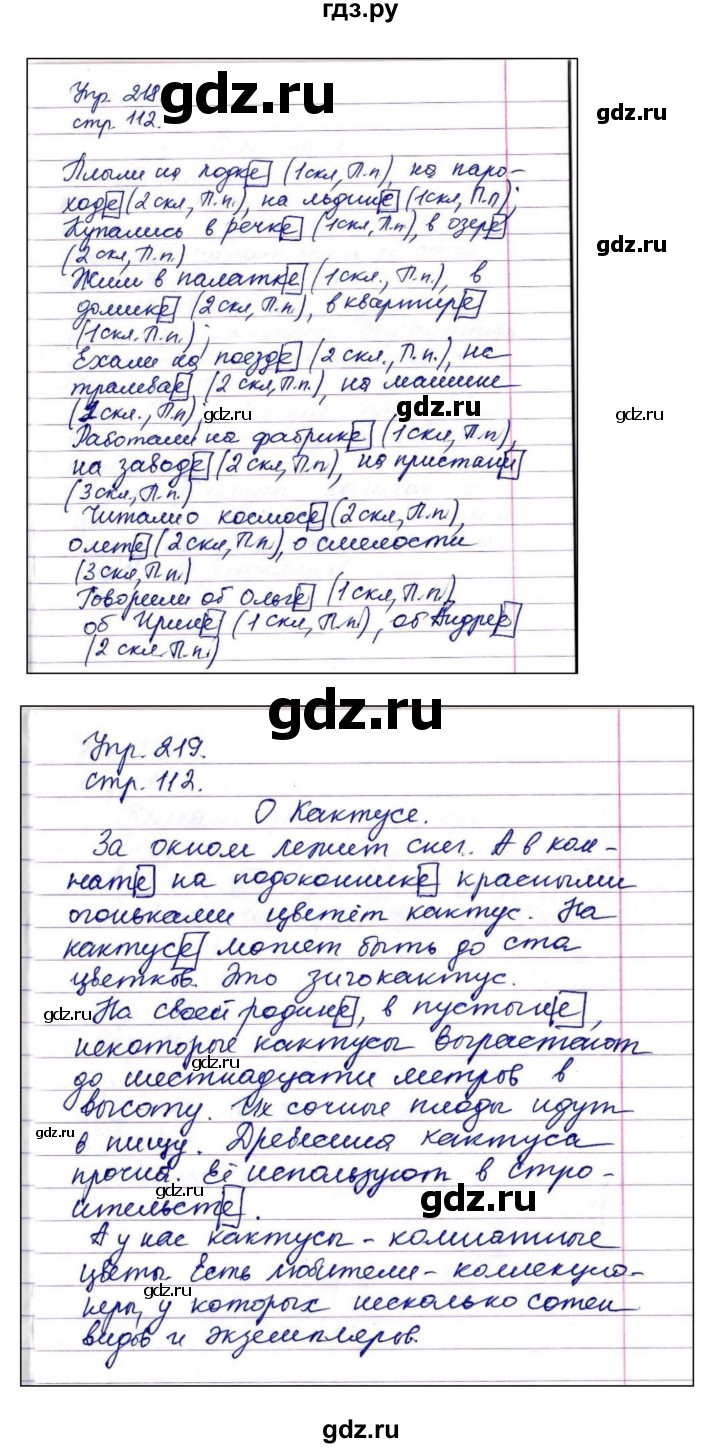 гдз.ру
Упр. 218
стр. 112.
gdz.ru
gdz.ru
Плыли на лодке (1скл, П.п), на паро-
ходе (2скл, П.п.), на льдине (1скл, П.п);
Купались в речке (1скл, П.п), в озере
(2скл, П.п)
gdz.ru
Жили в палатке (1скл., П.п.), в
домике (2скл, П.п.), в квартире
(1скл. П.п.);
Ехали на поезде (2скл., П.п.), на
трамвае (2скл, П.п.), на машине
(1скл., П.п);
gdz.ru
gdz.ru
gdz.ru
Работали на фабрике (1скл, П.п),
на заводе (2скл, П.п), на пристани
(3скл, П.п.)
Читали о космосе (2скл, П.п.),
о лете (2скл, П.п), о смелости
(3скл, П.п.)
Говорили об Ольге (1скл, П.п),
об Ирине (1скл, П.п.), об Андрее
(2скл. П.п.)
gdz.ru
Упр. 219.
стр. 112.
О Кактусе.
За окном летит снег. А в ком-
нате на подоконнике красными
огоньками цветёт кактус. На
кактусе может быть до ста
цветков. Это зигокактус.
gdz.ru
На своей родине, в пустыне,
некоторые кактусы вырастают
gdz.ru
до шестнадцати метров в
высоту. Их сочные плоды идут
gdz.ru
в пищу. Древесина кактуса
прочна. Её используют в стро-
gdz.ru
gdz.ru
ительстве.
А у нас кактусы - комнатные
цветы. Есть любители - коллекцио-
gdz.ru
неры, у которых несколько сотен
видов и экземпляров.
gdz.ru